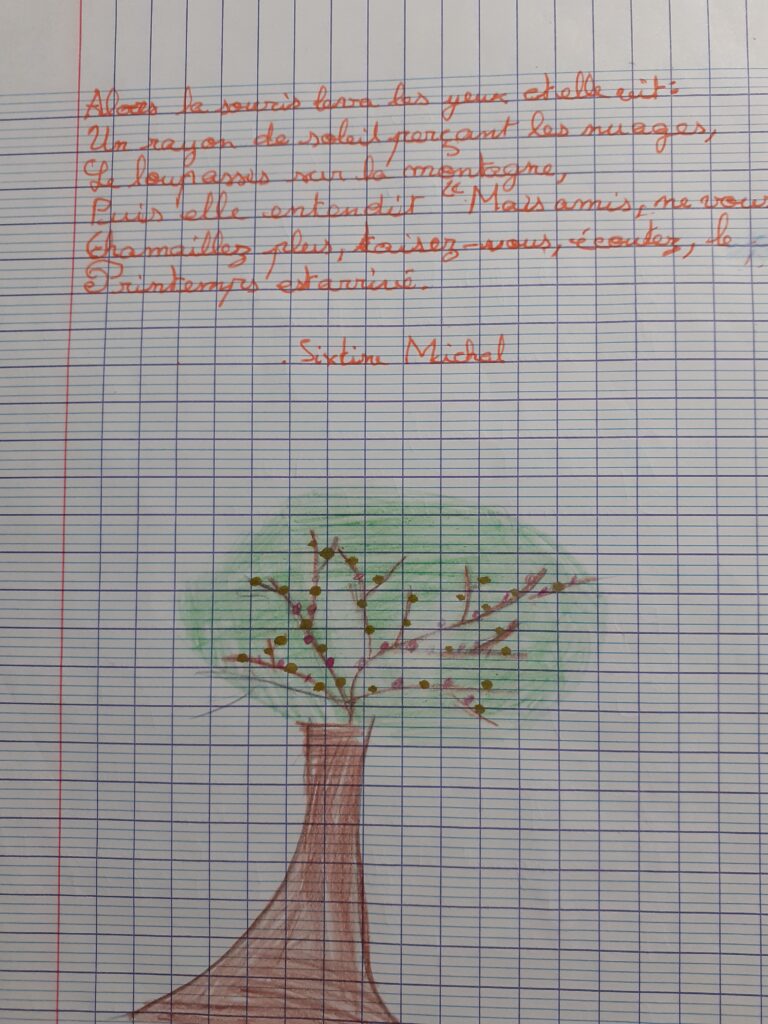 Alors la souris leva les yeux et elle vit:
Un rayon de soleil perçant les nuages,
Le loup assis sur la montagne,
Puis elle entendit "Mais amis, ne vous
Chamaillez plus, taisez-vous, écoutez, le
Printemps est arrivé.
. Sixtine Michel